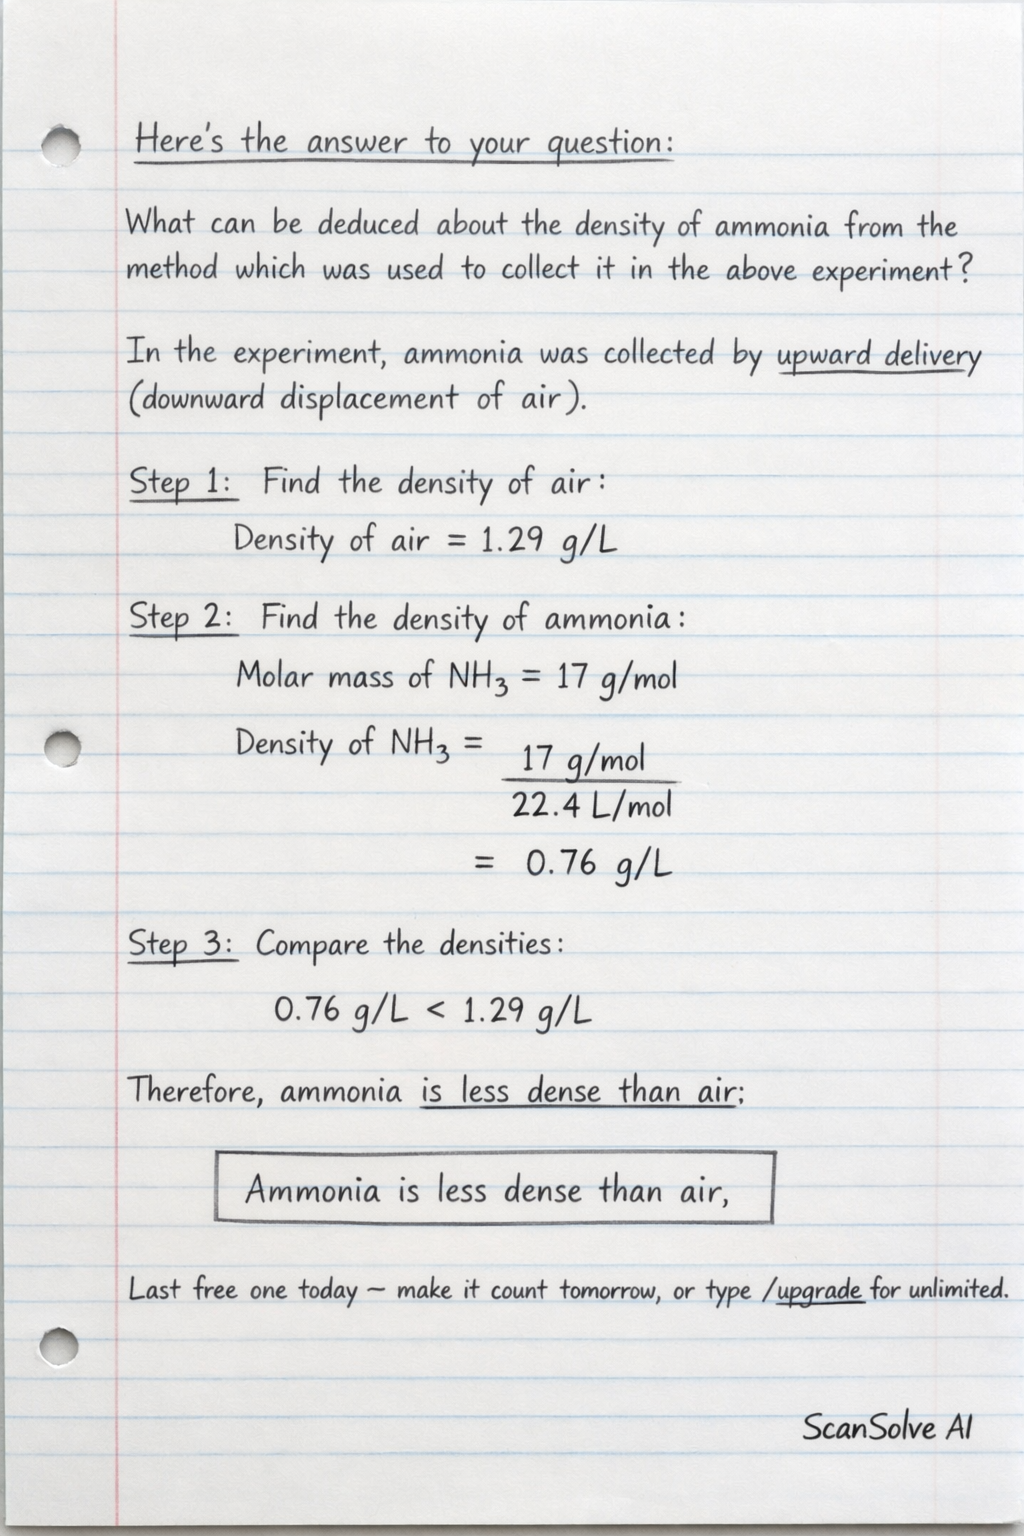 Here's the answer to your question:
What can be deduced about the density of ammonia from the
method which was used to collect it in the above experiment?
In the experiment, ammonia was collected by upward delivery
(downward displacement of air).
Step 1: Find the density of air:
Density of air = 1.29 g/L
Step 2: Find the density of ammonia:
Molar mass of NH₃ = 17 g/mol
Density of NH₃ = 17 g/mol
22.4 L/mol
= 0.76 g/L
Step 3: Compare the densities:
0.76 g/L < 1.29 g/L
Therefore, ammonia is less dense than air;
Ammonia is less dense than air,
Last free one today – make it count tomorrow, or type /upgrade for unlimited.
ScanSolve AI